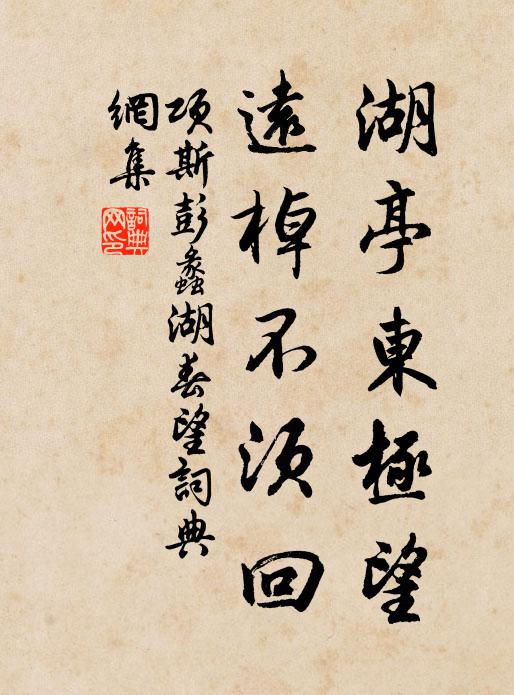 湖亭東極望
遠棹不須回
項斯彭蠡湖春望詞典
網集
詞典
网印